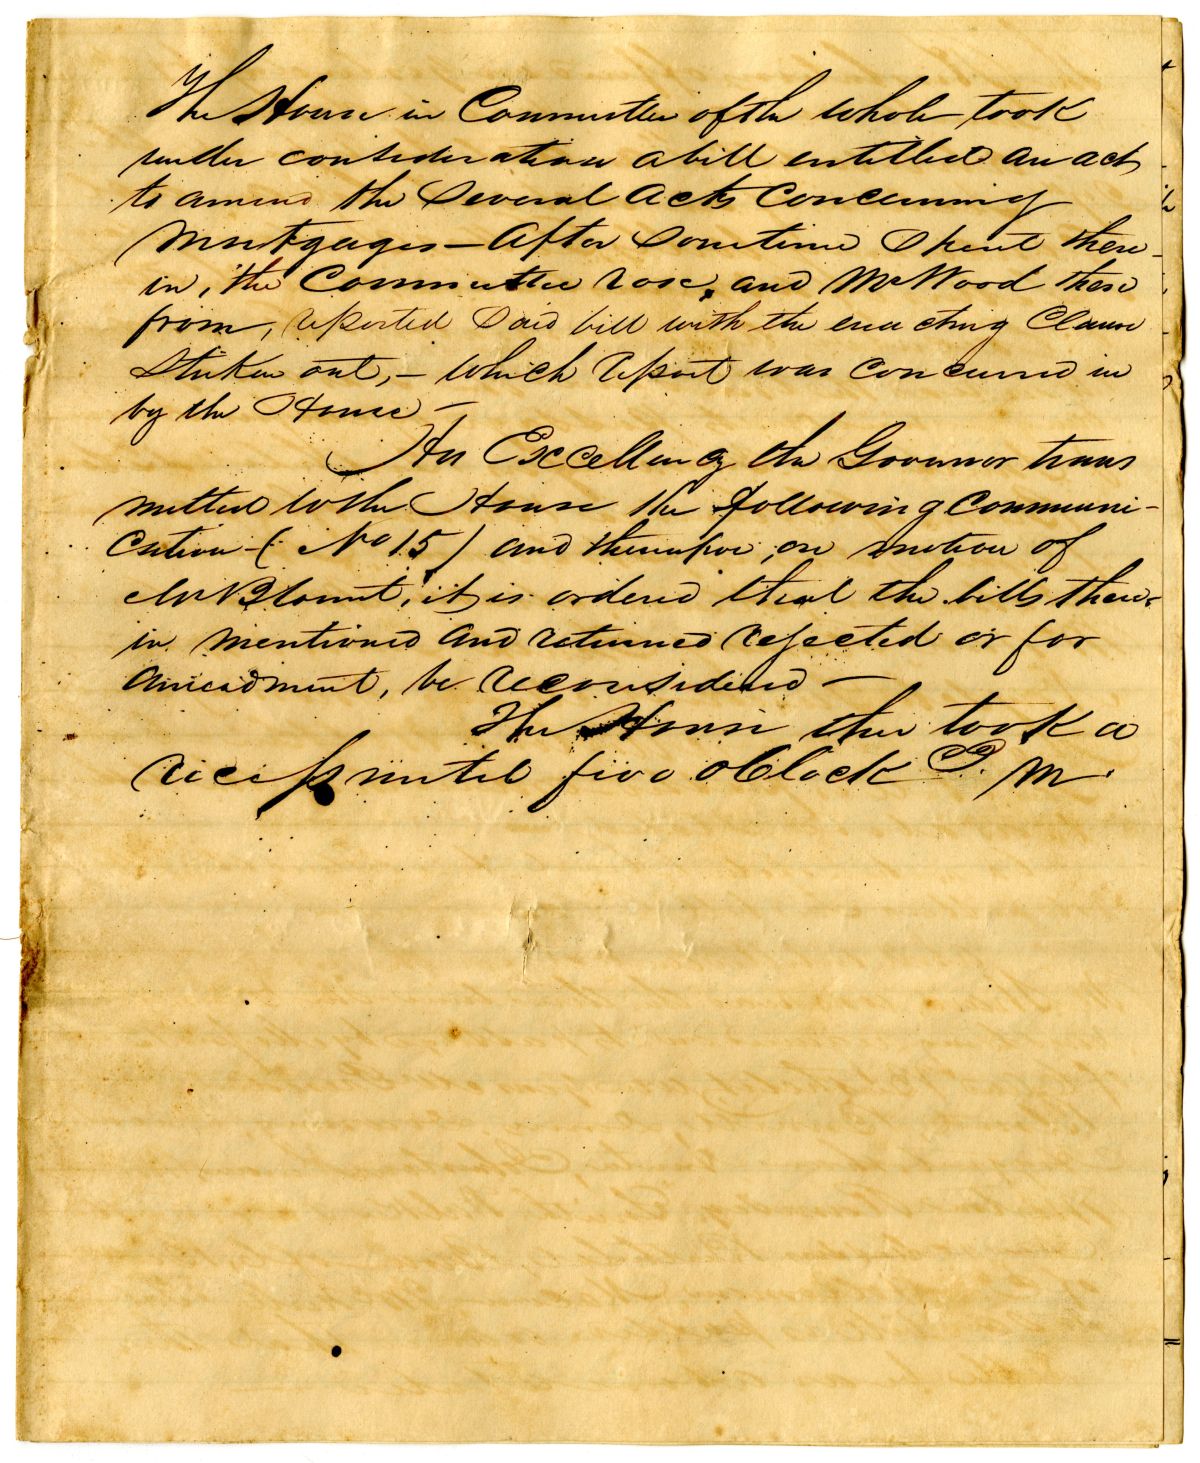 The House in Committee of the whole took
under consideration a bill entitled an act
to amend the several acts concerning
mortgages — After sometime spent there-
in, the Committee rose, and Mr Wood there
from, reported said bill with the enacting Clause
stricken out, — which report was concurred in
by the House —
His Excellency the Governor trans
mitted to the House the following communi-
cation (No 15) and thereupon, on motion of
Mr Blount, it is ordered that the bills there-
in mentioned and returned rejected or for
amendment, be reconsidered —
The House then took a
recess until five oClock P. M.